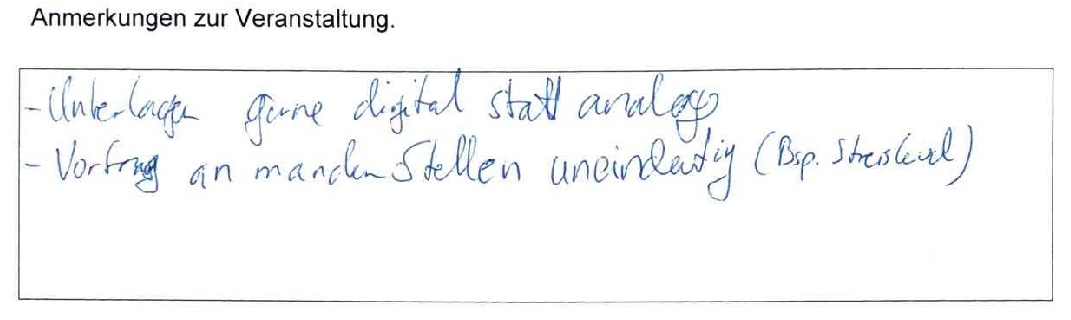 Anmerkungen zur Veranstaltung.
- Unterlagen gerne digital statt analog
- Vortrag an manchen Stellen uneindeutig (Bsp. Stresslevel)